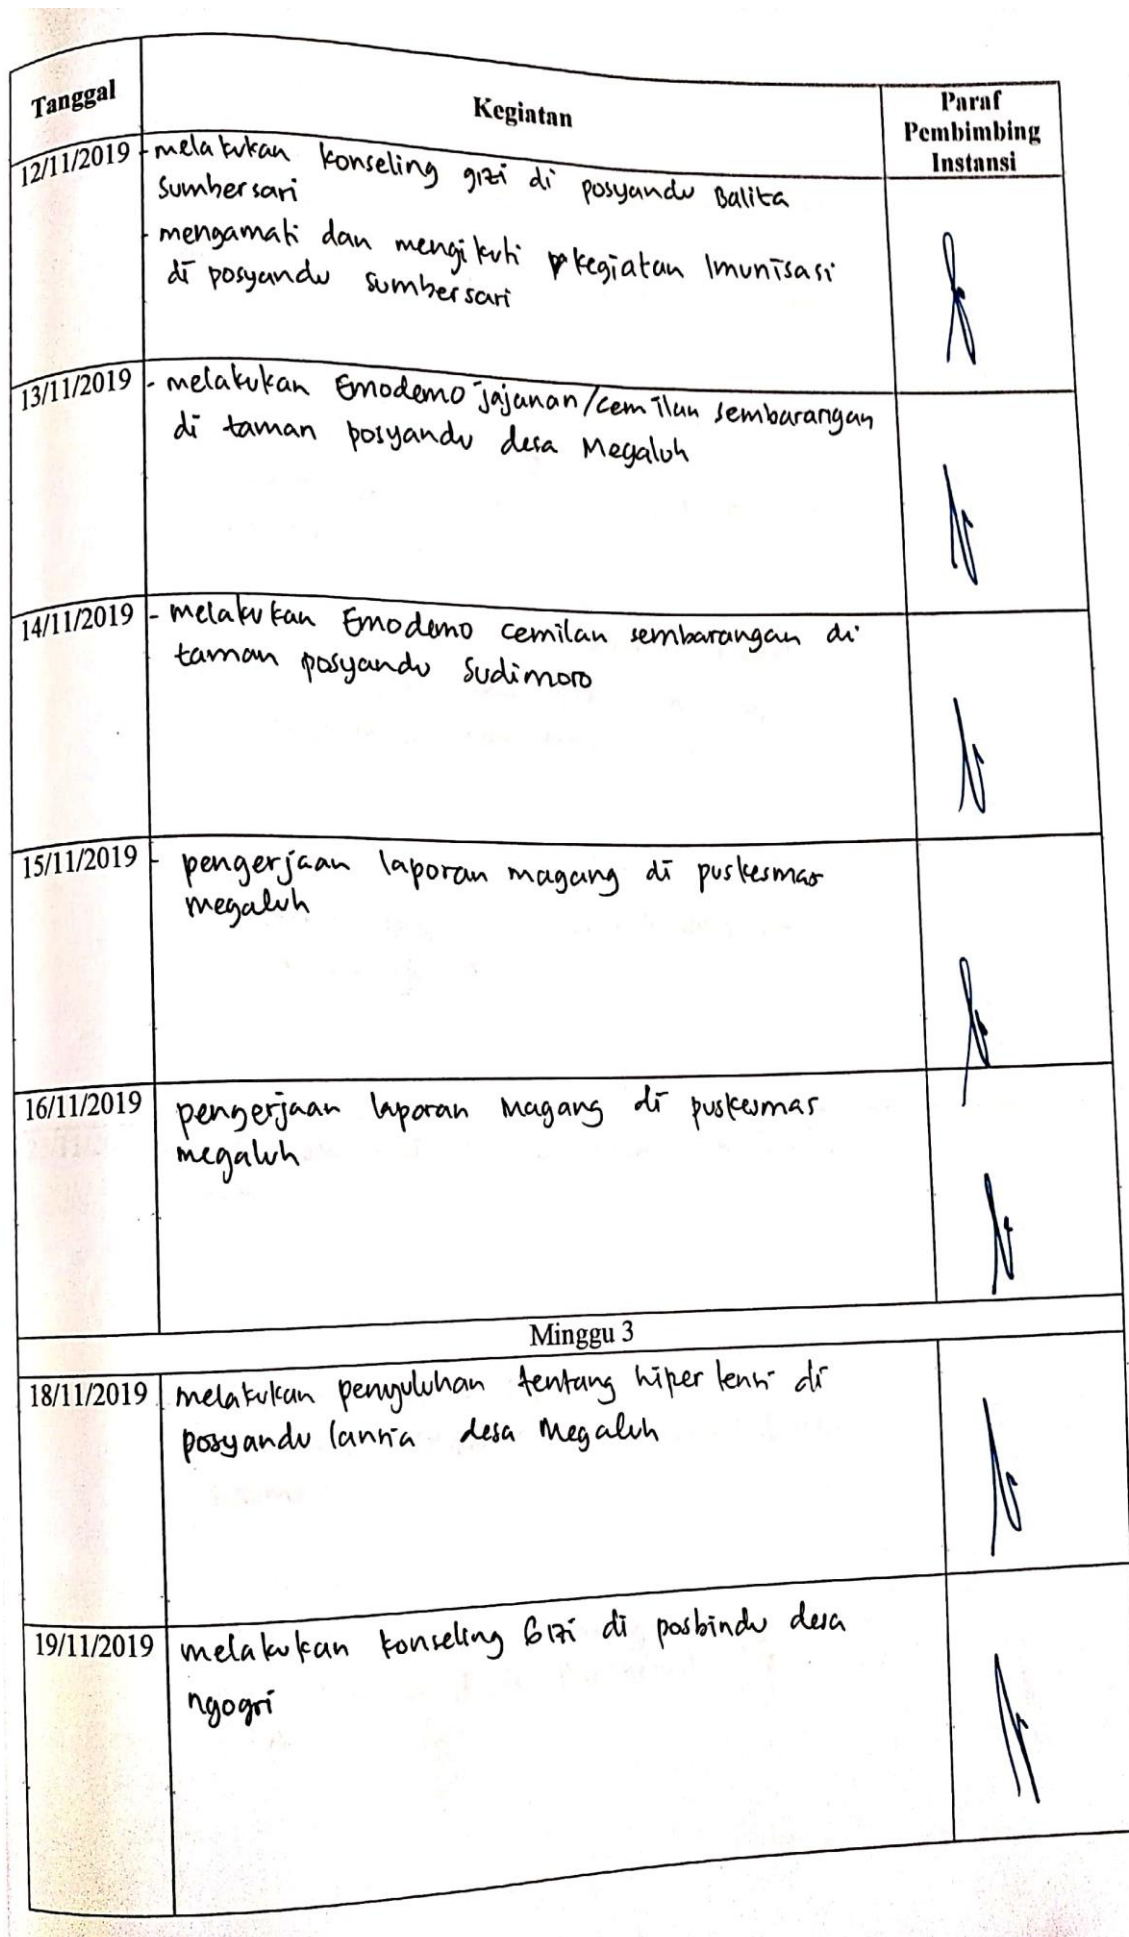 Tanggal
Kegiatan
Paraf
Pembimbing
Instansi
12/11/2019
- melakukan konseling gizi di posyandu Balita
Sumbersari
- mengamati dan mengikuti kegiatan Imunisasi
di posyandu Sumbersari
13/11/2019
- melakukan Emodemo jajanan/cemilan sembarangan
di taman posyandu desa Megaluh
14/11/2019
- melakukan Emodemo cemilan sembarangan di
taman posyandu Sudimoro
15/11/2019
- pengerjaan laporan magang di puskesmas
megaluh
16/11/2019
pengerjaan laporan Magang di puskesmas
megaluh
Minggu 3
18/11/2019
melakukan penyuluhan tentang hipertensi di
posyandu lansia desa Megaluh
19/11/2019
melakukan konseling Gizi di posbindu desa
ngogri